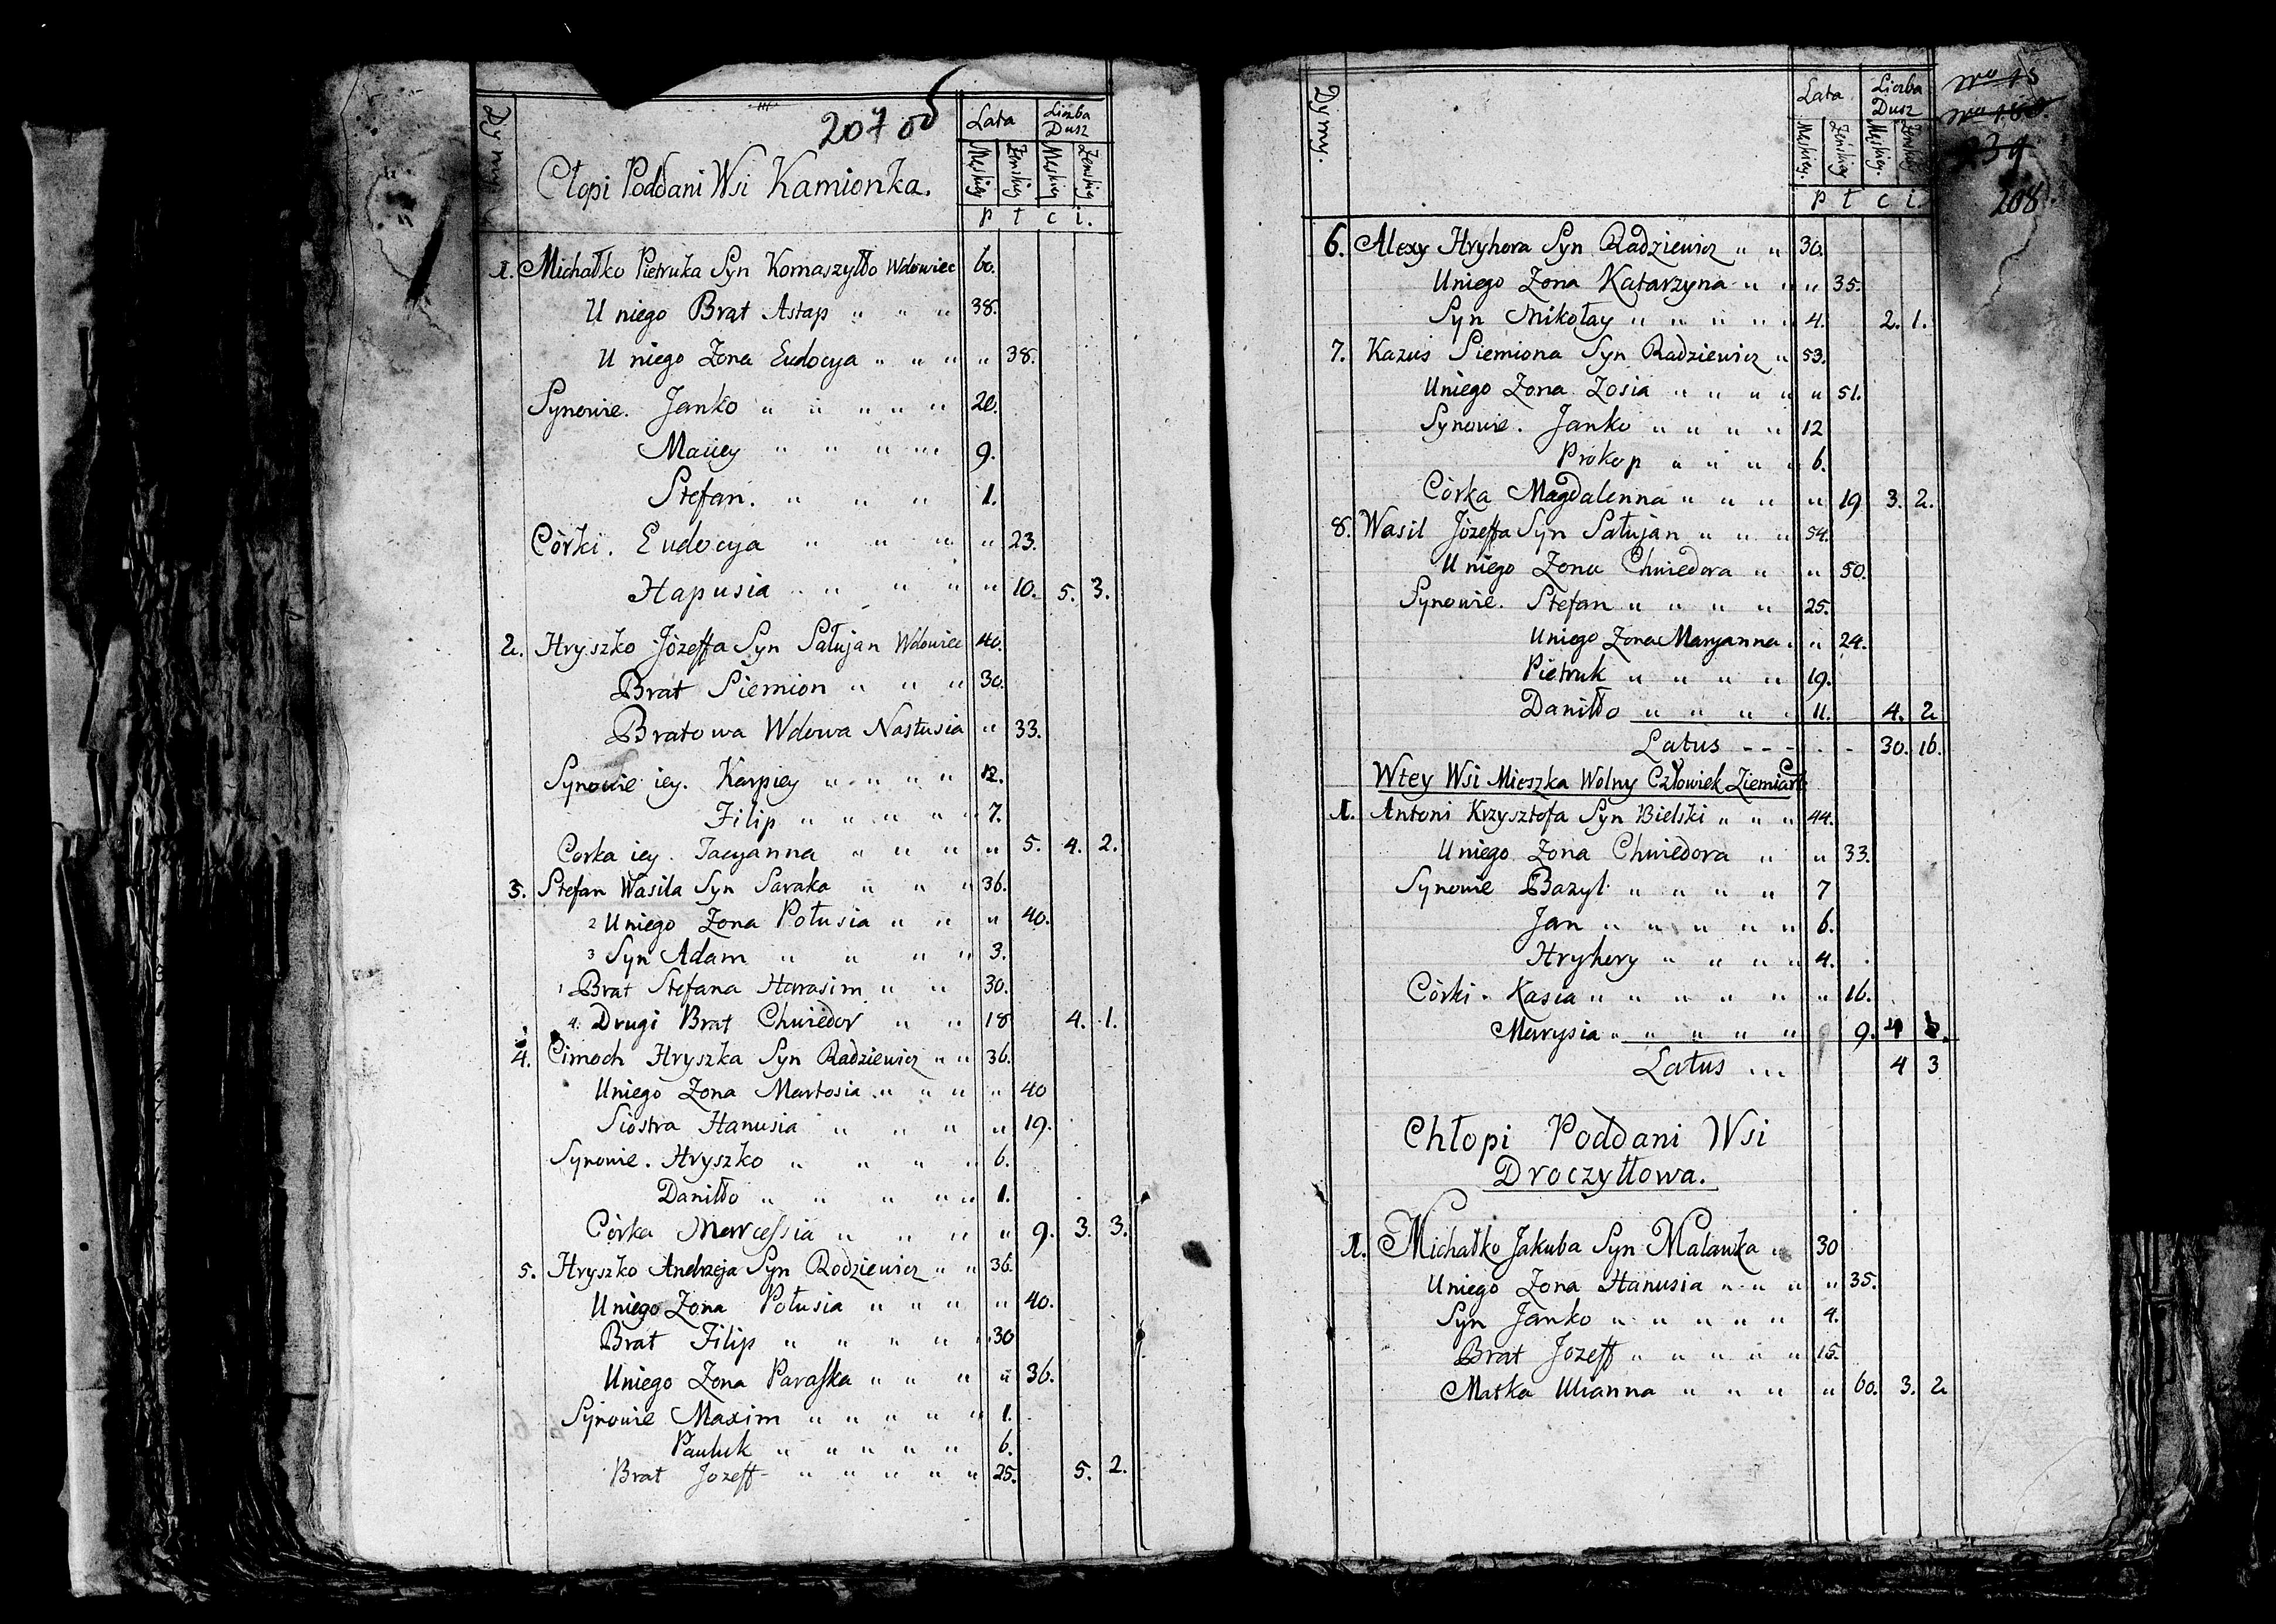 207 od
Dymy
Cłopi Poddani Wsi Kamionka.
Lata Liczba Dusz
Męskiey Żenskiey Męskiey Żenskiey
p t c i.
1. Michałko Pietruka Syn Komaszyłło Wdowiec 60.
U niego Brat Astap " " " 38.
U niego Zona Eudocya " " " " 38.
Synowie. Janko " " " " " 20.
Maciey " " " " " 9.
Stefan. " " " 1.
Córki. Eudocya " " " " 23.
Hapusia " " " " " 10. 5. 3.
2. Hryszko Józeffa Syn Sałujan Wdowiec 40.
Brat Siemion " " " 30.
Bratowa Wdowa Nastusia " 33.
Synowie iey. Karpiey " " " " 12.
Filip " " " " " 7.
Corka iey. Tacyanna " " " " " 5. 4. 2.
3. Stefan Wasila Syn Saraka " " " 36.
2 Uniego Zona Połusia " " " 40.
3 Syn Adam " " " " 3.
1 Brat Stefana Harasim " " 30.
4. Drugi Brat Chwiedor " " 18 4. 1.
4. Cimoch Hryszka Syn Radziewicz " " 36.
Uniego Zona Martosia " " " " 40
Siostra Hanusia " " " " 19.
Synowie. Hryszko " " " " 6.
Daniłło " " " " " 1.
Córka Marcessia " " " " 9. 3. 3.
5. Hryszko Andrzeja Syn Rodziewicz " " 36.
Uniego Zona Połusia " " " " 40.
Brat Filip " " " " " 30
Uniego Zona Paraska " " " " 36.
Synowie Maxim " " " " " 1.
Pauluk " " " " " 6.
Brat Jozeff " " " " " 25. 5. 2.
Dymy.
Lata Liczba Dusz
Męskiey. Żeńskiey Męskiey. Żeńskiey
p t c i.
239
208
6. Alexy Hryhora Syn Radziewicz " " 30.
Uniego Zona Katarzyna " " " 35.
Syn Mikołay " " " " " 4. 2. 1.
7. Kazus Siemiona Syn Radziewicz " 53.
Uniego Zona Zosia " " " " " 51.
Synowie. Janko " " " " 12
Prokop " " " " 6.
Córka Magdalenna " " " " " 19 3. 2.
8. Wasil Józeffa Syn Sałujan " " " 54.
U niego Zona Chwiedora " " 50.
Synowie. Stefan " " " " 25.
Uniego Zona Maryanna " " 24.
Pietruk " " " " 19.
Daniłło " " " " 11. 4. 2
Latus - - - - - 30. 16.
Wtey Wsi Mieszka Wolny Człowiek Ziemian
1. Antoni Krzysztofa Syn Bielski " " " 44.
Uniego Zona Chwiedora " " 33.
Synowie Bazyl " " " " 7
Jan " " " " " 6.
Hryhery " " " " 4.
Córki. Kasia " " " " " " 16.
Marysia " " " " " 9. 4
Latus ... 4 3
Chłopi Poddani Wsi
Droczyłłowa.
1. Michałko Jakuba Syn Malawka " 30
Uniego Zona Hanusia " " " " 35.
Syn Janko " " " " " 4.
Brat Jozeff " " " " " 15.
Matka Ulianna " " " " 60. 3. 2